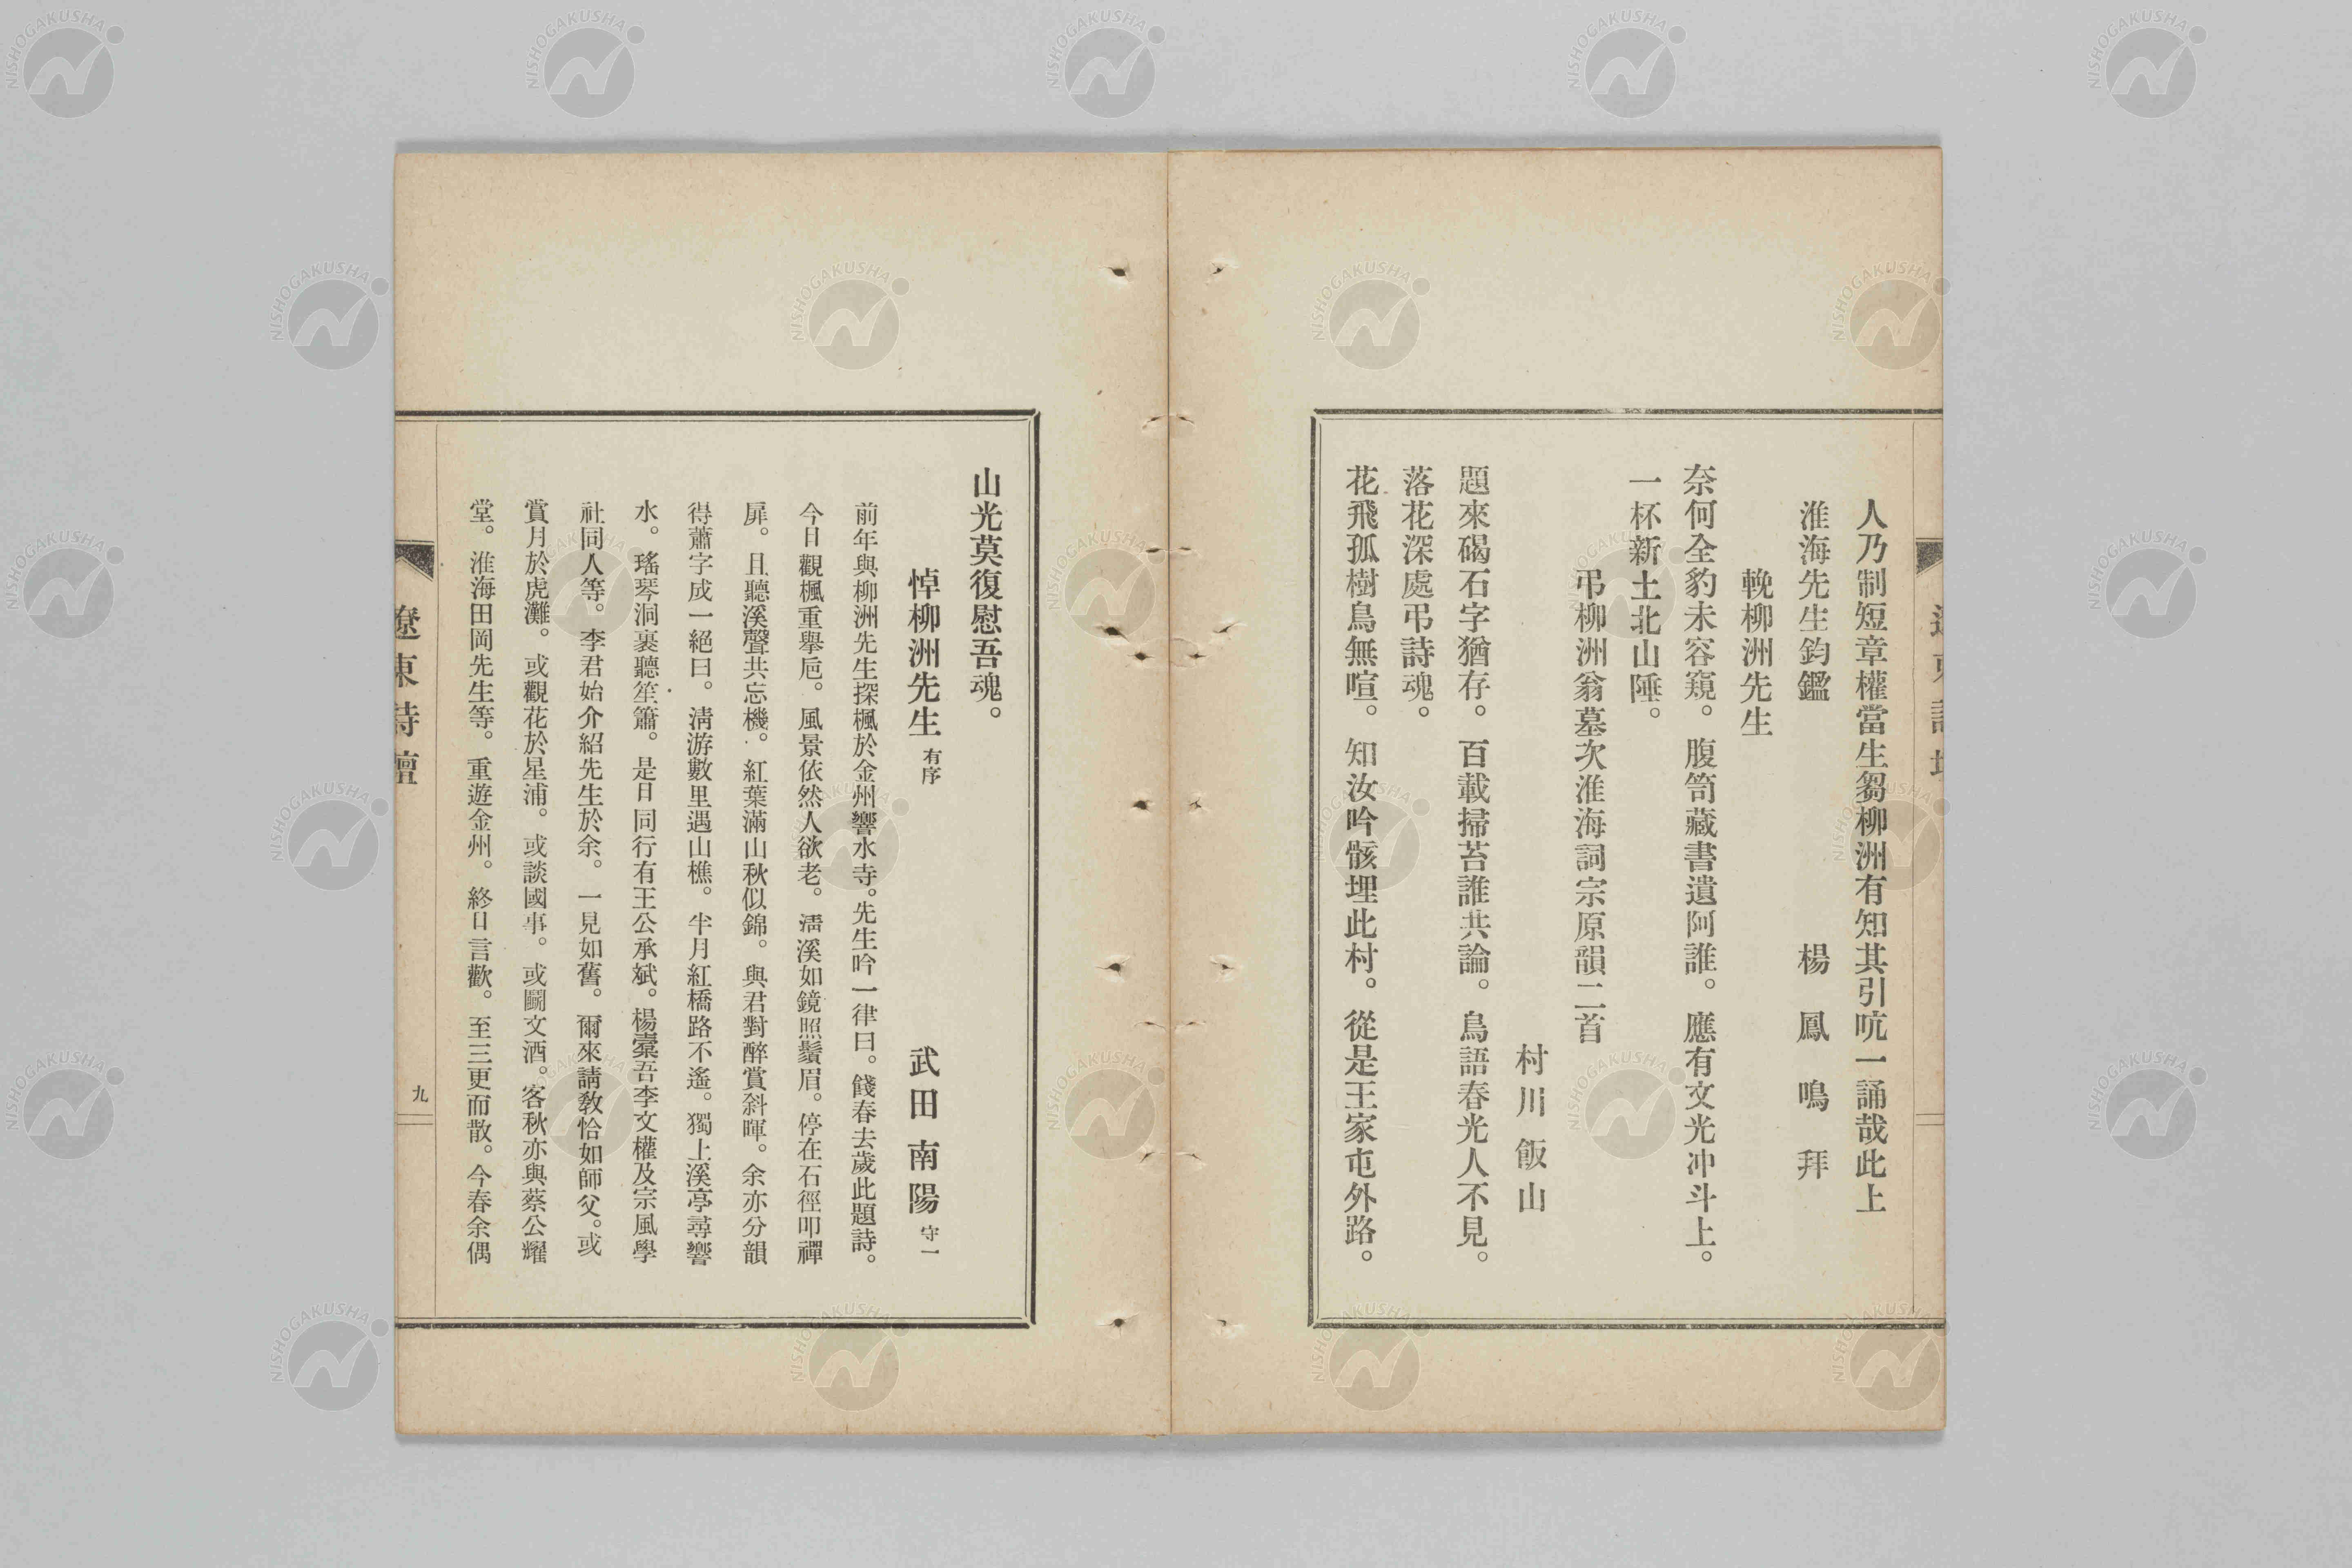 人乃制短章權當生芻柳洲有知其引吭一誦哉此上
淮海先生鈞鑑　楊鳳鳴拜
輓柳洲先生
奈何全豹未容窺。腹笥藏書遺阿誰。應有文光冲斗上。
一杯新土北山陲。
弔柳洲翁墓次淮海詞宗原韻二首
村川飯山
題來碣石字猶存。百載掃苔誰共論。鳥語春光人不見。
落花深處弔詩魂。
花飛孤樹鳥無喧。知汝吟骸埋此村。從是王家屯外路。
山光莫復慰吾魂。
悼柳洲先生 有序　武田南陽 守一
前年與柳洲先生探楓於金州響水寺。先生吟一律曰。餞春去歲此題詩。
今日觀楓重擧巵。風景依然人欲老。淸溪如鏡照鬚眉。停在石徑叩禪
扉。且聽溪聲共忘機。紅葉滿山秋似錦。與君對醉賞斜暉。余亦分韻
得蕭字成一絕曰。淸游數里遇山樵。半月紅橋路不遙。獨上溪亭尋響
水。瑤琴洞裏聽笙簫。是日同行有王公承斌。楊槖吾李文權及宗風學
社同人等。李君始介紹先生於余。一見如舊。爾來請敎恰如師父。或
賞月於虎灘。或觀花於星浦。或談國事。或鬭文酒。客秋亦與蔡公耀
堂。淮海田岡先生等。重遊金州。終日言歡。至三更而散。今春余偶
遼東詩壇
九
NISHOGAKUSHA